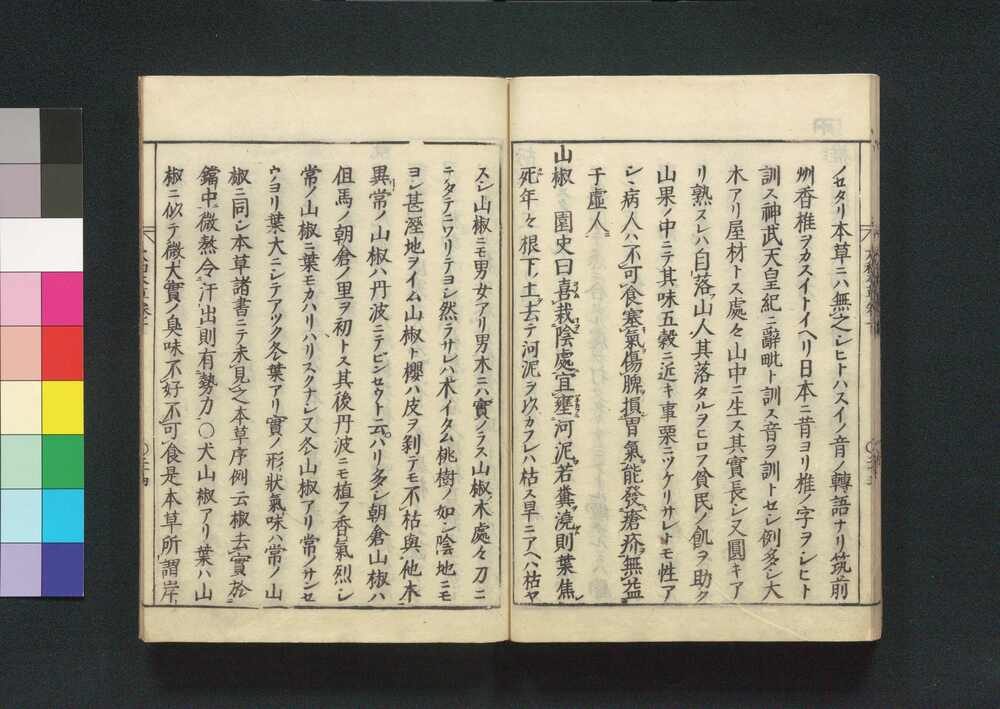 ノセタリ本草ニハ無之シヒトハスイノ音ノ轉語ナリ筑前
州香椎ヲカスイトイヘリ日本ニ昔ヨリ椎ノ字ヲシヒト
訓ス神武天皇紀ニ辭毗ト訓ス音ヲ訓トセシ例多シ大
木アリ屋材トス處々山中ニ生ス其實長シ又圓キア
リ熟スレハ自落山人其落タルヲヒロフ貧民ノ飢ヲ助ク
山果ノ中ニテ其味五穀ニ近キ事栗ニツケリサレトモ性ア
シヽ病人ハ不可食塞氣傷脾損胃氣能發瘡疥無益
于虛人
山椒 園史曰喜栽陰處宜壅河泥若糞澆則葉焦
死年々根下ノ土去テ河泥ヲ以カフレハ枯ス旱ニアヘハ枯ヤ
スシ山椒ニモ男女アリ男木ニハ實ノラス山椒木處々刀ニ
テタテニワリテヨシ然ラサレハ木イタム桃樹ノ如シ陰地ニモ
ヨシ甚溼地ヲイム山椒ト櫻ハ皮ヲ剥テモ不枯與他木
異常ノ山椒ハ丹波ニテビンセウト云ハリ多シ朝倉山椒ハ
但馬ノ朝倉ノ里ヲ初トス其後丹波ニモ植フ香氣烈シ
常ノ山椒ニ葉モカハリハリスクナシ又冬山椒アリ常ノサンセ
ウノヨリ葉大ニシテアツク冬葉アリ實ノ形狀氣味ハ常ノ山
椒ニ同シ本草諸書ニテ未見之本草序例云椒去實於
鐺中微熬令汗出則有勢力〇犬山椒アリ葉ハ山
椒ニ似テ微大實ノ臭味不好不可食是本草所謂岸